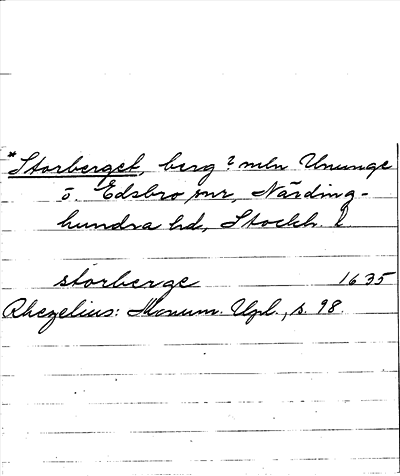 *Storberget, berg? mln Ununge
o. Edsbro snr, Närding-
hundra hd, Stockh. l.
storberge 1635
Rhezelius: Monum. Upl., s. 98.